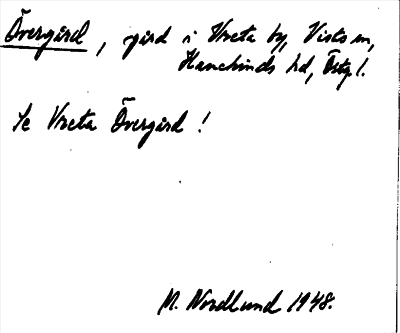 Övergård, gård i Vreta by, Vists sn,
Hanekinds hd, Östg l.
Se Vreta Övergård!
M. Nordlund 1948.